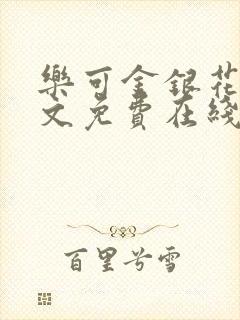 樂可金銀花
文免費在綫
百里兮雪